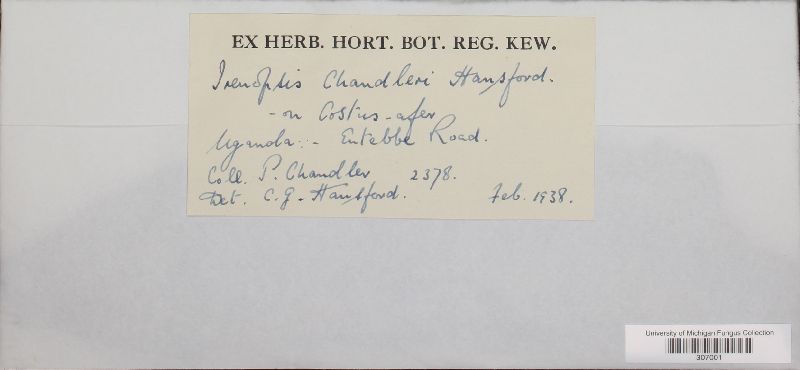 EX HERB. HORT. BOT. REG. KEW.
Irenopsis Chandleri Hansford.
- on Costus afer
Uganda :- Entebbe Road.
Coll. P. Chandler 2378.
Det. C. G. Hansford. Feb. 1938.
University of Michigan Fungus Collection
307001